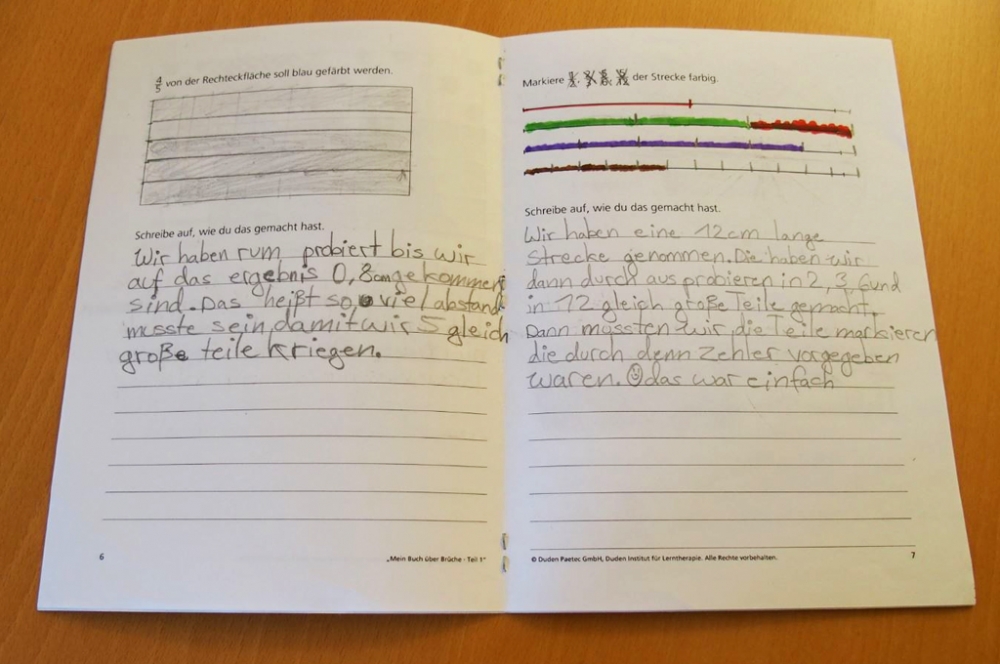 4/5 von der Rechteckfläche soll blau gefärbt werden.
Schreibe auf, wie du das gemacht hast.
Wir haben rum probiert bis wir
auf das ergebnis 0,8cm gekommen
sind. Das heißt so viel abstand
musste sein, damit wir 5 gleich
große teile kriegen.
6
„Mein Buch über Brüche - Teil 1“
Markiere der Strecke farbig.
Schreibe auf, wie du das gemacht hast.
Wir haben eine 12cm lange
Strecke genommen. Die haben wir
dann durch aus probieren in 2, 3, 6 und
in 12 gleich große Teile gemacht.
Dann müssten wir die Teile markieren
die durch denn Zehler vorgegeben
waren. das war einfach
© Duden Paetec GmbH, Duden Institut für Lerntherapie. Alle Rechte vorbehalten.
7